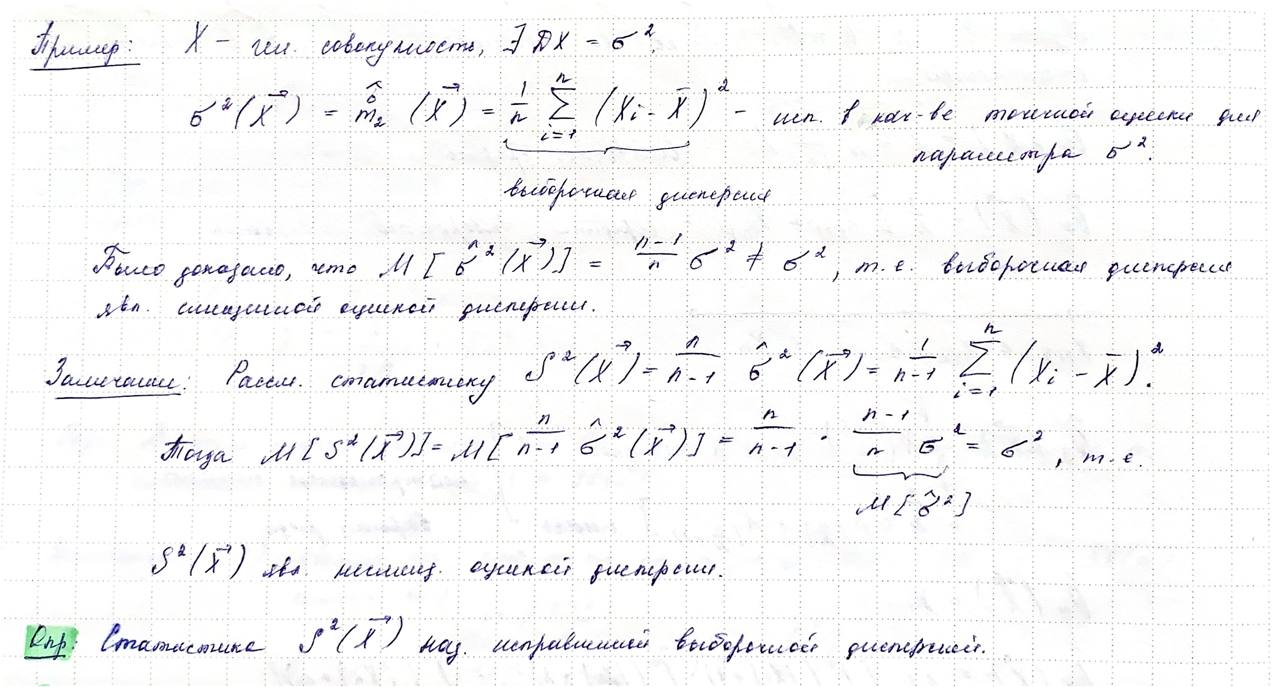 Пример: X – ген. совокупность, ∃ DX = σ².
σ²(X⃗) = m̂̊₂ (X⃗) = 1/n ∑ᵢ₌₁ⁿ (Xᵢ - X̄)² – исп. в кач-ве точечной оценки для
параметра σ².
выборочная дисперсия
Было доказано, что M[σ̂²(X⃗)] = (n-1)/n σ² ≠ σ², т.е. выборочная дисперсия
явл. смещенной оценкой дисперсии.
Замечание: Рассм. статистику S²(X⃗) = n/(n-1) σ̂²(X⃗) = 1/(n-1) ∑ᵢ₌₁ⁿ (Xᵢ - X̄)².
Тогда M[S²(X⃗)] = M[n/(n-1) σ̂²(X⃗)] = n/(n-1) · (n-1)/n σ² = σ², т.е.
M[σ̂²]
S²(X⃗) явл. несмещ. оценкой дисперсии.
Опр: Статистика S²(X⃗) наз. исправленной выборочной дисперсией.